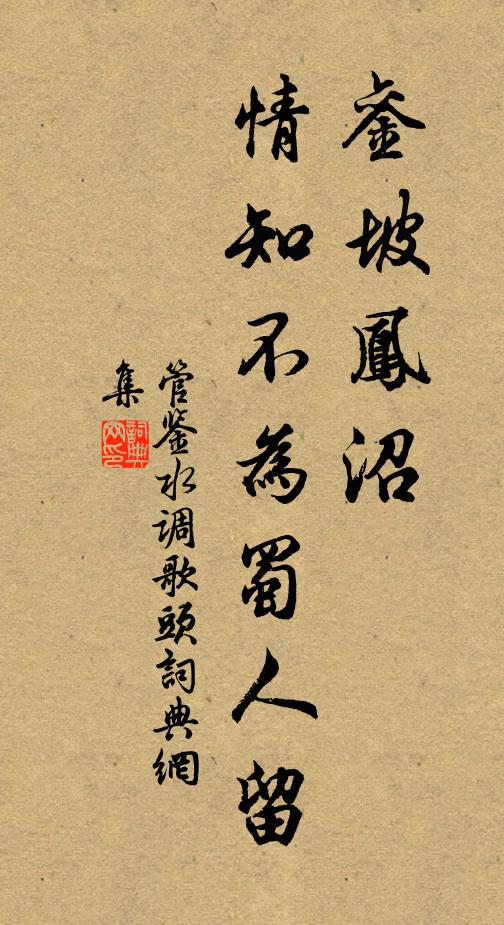 銮坡鳳沼
情知不為蜀人留
管鉴水调歌頭詞典網
集
詞典
网印